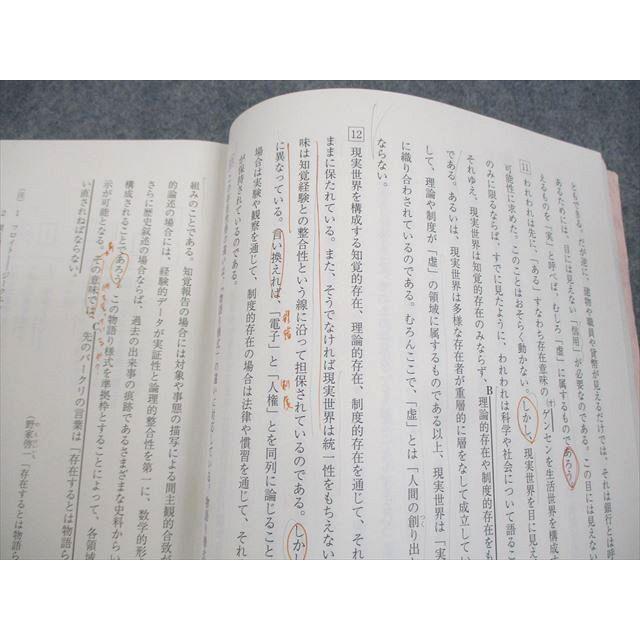 ともできる。だが逆に、建物や職員や貨幣が見えるだけでは、それは銀行とは呼
あるためには、目には見えない「信用」が必要なのである。この目には見えない
えるものを「実」と呼べば、むしろ「虚」に属するものであろう。
11 われわれは先に、「ある」すなわち存在意味の(オ)ゲンセンを生活世界を構成す
可能性に求めた。このことはおそらく動かない。しかし、現実世界を目に見え
のみに限るならば、すでに見たように、われわれは科学や社会について語るこ
それゆえ、現実世界は知覚的存在のみならず、B理論的存在や制度的存在をも
である。あるいは、現実世界は多様な存在者が重層的に層をなして成立してい
して、理論や制度が「虚」の領域に属するものである以上、現実世界は「実
に織り合わされているのである。むろんここで、「虚」とは「人間の創り出
つく
ならない。
12 現実世界を構成する知覚的存在、理論的存在、制度的存在を通じて、それ
ままに保たれている。また、そうでなければ現実世界は統一性をもちえない
味は知覚経験との整合性という線に沿って担保されているのである。しか
に異なっている。言い換えれば、「電子」と「人権」とを同列に論じること
理論 制度
場合は実験や観察を通じて、制度的存在の場合は法律や慣習を通じて、それ
が保持されているのである。
組みのことである。知覚報告の場合には対象や事態の描写による間主観的合致が
的論述の場合には、経験的データが実証性と論理的整合性を第一に、数学的形
さらに歴史叙述の場合ならば、過去の出来事の痕跡であるさまざまな史料からい
構成されることであろう。この物語り様式を準拠枠とすることによって、各領域
示が可能となる。その意味では、C先のバークリの言葉は「存在するとは物語ら
い直されねばならない。
のえ
(野家啓一「存在するとは物語ら
(注) 1 フロイト
2